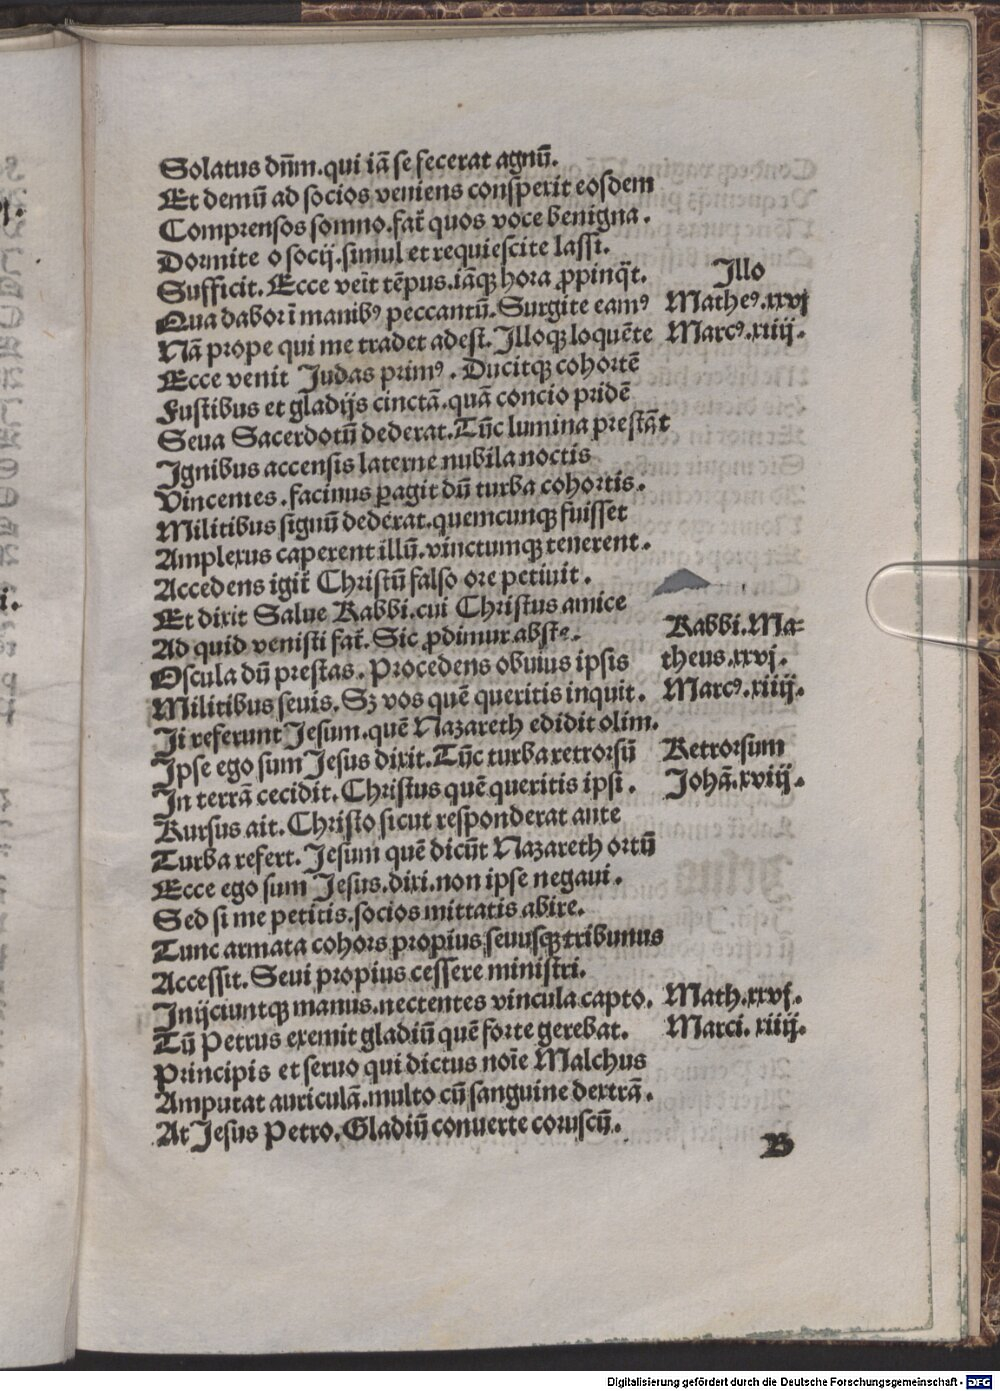 Solatus dn̄m.qui iā se fecerat agnū.
Et demū ad socios veniens conspexit eosdem
Comprensos somno.fat̄ quos voce benigna.
Dormite o socij.simul et requiescite lassi.
Sufficit. Ecce veīt tēpus.iāqꝫ hora ꝓpinq̄t.
Illo
Qua dabor ī manibꝰ peccantū. Surgite eamꝰ
Matheꝰ.xxvj
Nā prope qui me tradet adest. Illoqꝫ loquēte
Marcꝰ.xiiij.
Ecce venit Judas primꝰ. Ducitqꝫ cohortē
Fustibus et gladijs cinctā.quā concio pridē
Seua Sacerdotū dederat.Tūc lumina prestāt
Ignibus accensis laterne nubila noctis
Vincentes.facinus ꝑagit dū turba cohortis.
Militibus signū dederat.quemcunqꝫ fuisset
Amplexus caperent illū.vinctumqꝫ tenerent.
Accedens igit̄ Christū falso ore petiuit.
Et dixit Salue Rabbi.cui Christus amice
Rabbi.Ma-
Ad quid venisti fat̄. Sic ꝓdimur abste.
theus.xxvj.
Oscula dū prestas. Procedens obuius ipsis
Marcꝰ.xiiij.
Militibus seuis. Sꝫ vos quē queritis inquit.
Ji referunt Jesum.quē Nazareth edidit olim.
Ipse ego sum Jesus dixit.Tūc turba retrorsū
Retrorsum
In terrā cecidit. Christus quē queritis ipsi.
Johā.xviij.
Rursus ait. Christo sicut responderat ante
Turba refert. Jesum quē dicūt Nazareth ortū
Ecce ego sum Jesus.dixi.non ipse negaui.
Sed si me petitis.socios mittatis abire.
Tunc armata cohors propius seuusqꝫ tribunus
Accessit. Seui propius cessere ministri.
Inijciuntqꝫ manus.nectentes vincula capto.
Math.xxvj.
Tū Petrus exemit gladiū quē forte gerebat.
Marci.xiiij.
Principis et seruo qui dictus noīe Malchus
Amputat auriculā.multo cū sanguine dextrā.
At Jesus Petro. Gladiū conuerte coruscū.
B
Digitalisierung gefördert durch die Deutsche Forschungsgemeinschaft - DFG